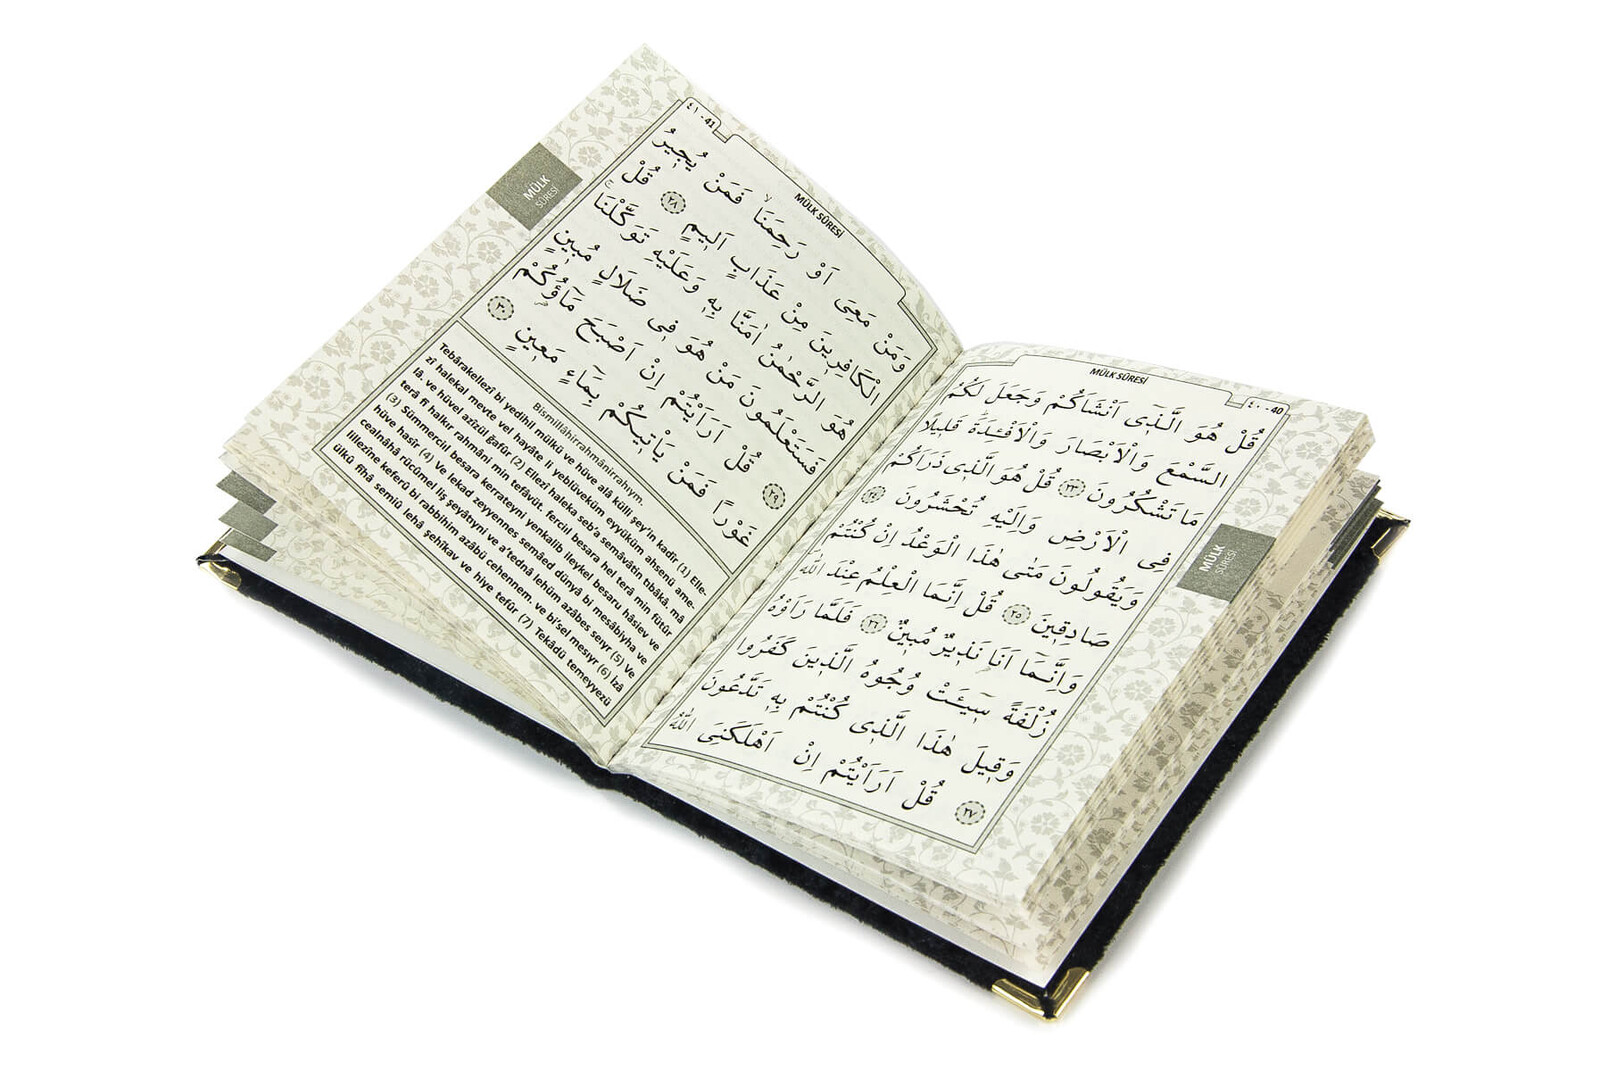 MÜLK SÛRESİ
٤٠ - 40
قُلْ هُوَ الَّذٖٓى اَنْشَاَكُمْ وَجَعَلَ لَكُمُ
السَّمْعَ وَالْاَبْصَارَ وَالْاَفْـِٔدَةَ قَلٖيلًا
مَا تَشْكُرُونَ ٢٣ قُلْ هُوَ الَّذٖى ذَرَاَكُمْ
فِى الْاَرْضِ وَاِلَيْهِ تُحْشَرُونَ ٢٤
وَيَقُولُونَ مَتٰى هٰذَا الْوَعْدُ اِنْ كُنْتُمْ
صَادِقٖينَ ٢٥ قُلْ اِنَّمَا الْعِلْمُ عِنْدَ اللّٰهِ
وَاِنَّمَٓا اَنَا نَذٖيرٌ مُبٖينٌ ٢٦ فَلَمَّا رَاَوْهُ
زُلْفَةً سٖٓيـَٔتْ وُجُوهُ الَّذٖينَ كَفَرُوا
وَقٖيلَ هٰذَا الَّذٖى كُنْتُمْ بِهٖ تَدَّعُونَ
٢٧ قُلْ اَرَاَيْتُمْ اِنْ اَهْلَكَنِىَ اللّٰهُ
MÜLK
SÛRESİ
٤١ - 41
MÜLK SÛRESİ
وَمَنْ مَعِىَ اَوْ رَحِمَنَا فَمَنْ يُجٖيرُ
الْكَافِرٖينَ مِنْ عَذَابٍ اَلٖيمٍ ٢٨ قُلْ
هُوَ الرَّحْمٰنُ اٰمَنَّا بِهٖ وَعَلَيْهِ تَوَكَّلْنَا
فَسَتَعْلَمُونَ مَنْ هُوَ فٖى ضَلَالٍ مُبٖينٍ
٢٩ قُلْ اَرَاَيْتُمْ اِنْ اَصْبَحَ مَٓاؤُ۬كُمْ
غَوْرًا فَمَنْ يَاْتٖيكُمْ بِمَٓاءٍ مَعٖينٍ ٣٠
Bismillâhirrahmânirrahıym.
Tebârakellezî bi yedihil mülkü ve hüve alâ külli şey'in kadîr (1) Elle-
zî halekal mevte vel hayâte li yeblüveküm eyyüküm ahsenü ame-
lâ, ve hüvel azîzül ğafûr (2) Ellezî haleka seb'a semâvâtin tıbâkâ, mâ
terâ fî halkır rahmâni min tefâvüt, fercııl besara hel terâ min fütûr
(3) Sümmerciıl besara kerrateyni yenkalib ileykel besaru hâsiev ve
hüve hasîr (4) Ve lekad zeyyennes semâed dünyâ bi mesâbiyha ve
cealnâhâ rücûmel liş şeyâtıyni ve a'tednâ lehüm azâbes seıyr (5) Ve
lillezîne keferû bi rabbihim azâbü cehennem, ve bi'sel mesıyr (6) İzâ
ülkû fîhâ semiû lehâ şehîkav ve hiye tefûr (7) Tekâdü temeyyezü
MÜLK
SÛRESİ